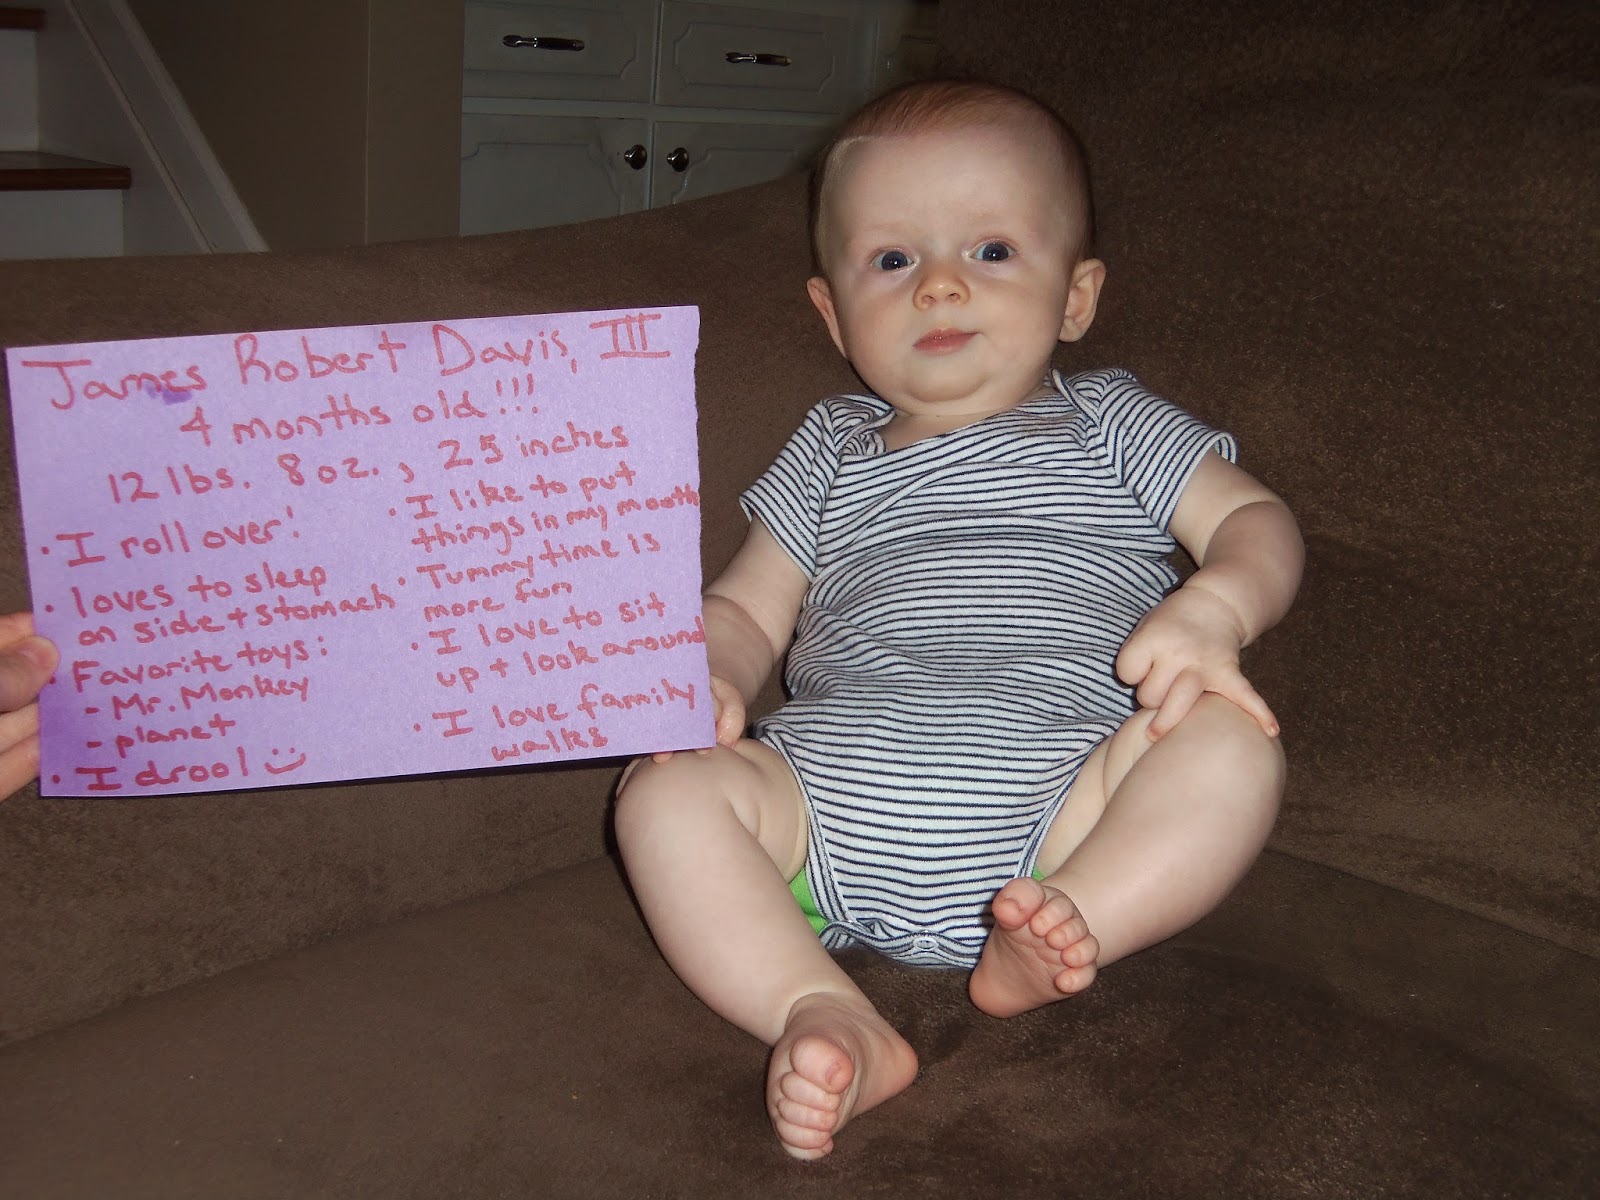 James Robert Davis, III
4 months old!!!
12 lbs. 8 oz., 25 inches
· I roll over!
· loves to sleep
on side + stomach
· Favorite toys:
- Mr. Monkey
- planet
· I drool :)
· I like to put
things in my mouth
· Tummy time is
more fun
· I love to sit
up + look around
· I love family
walks